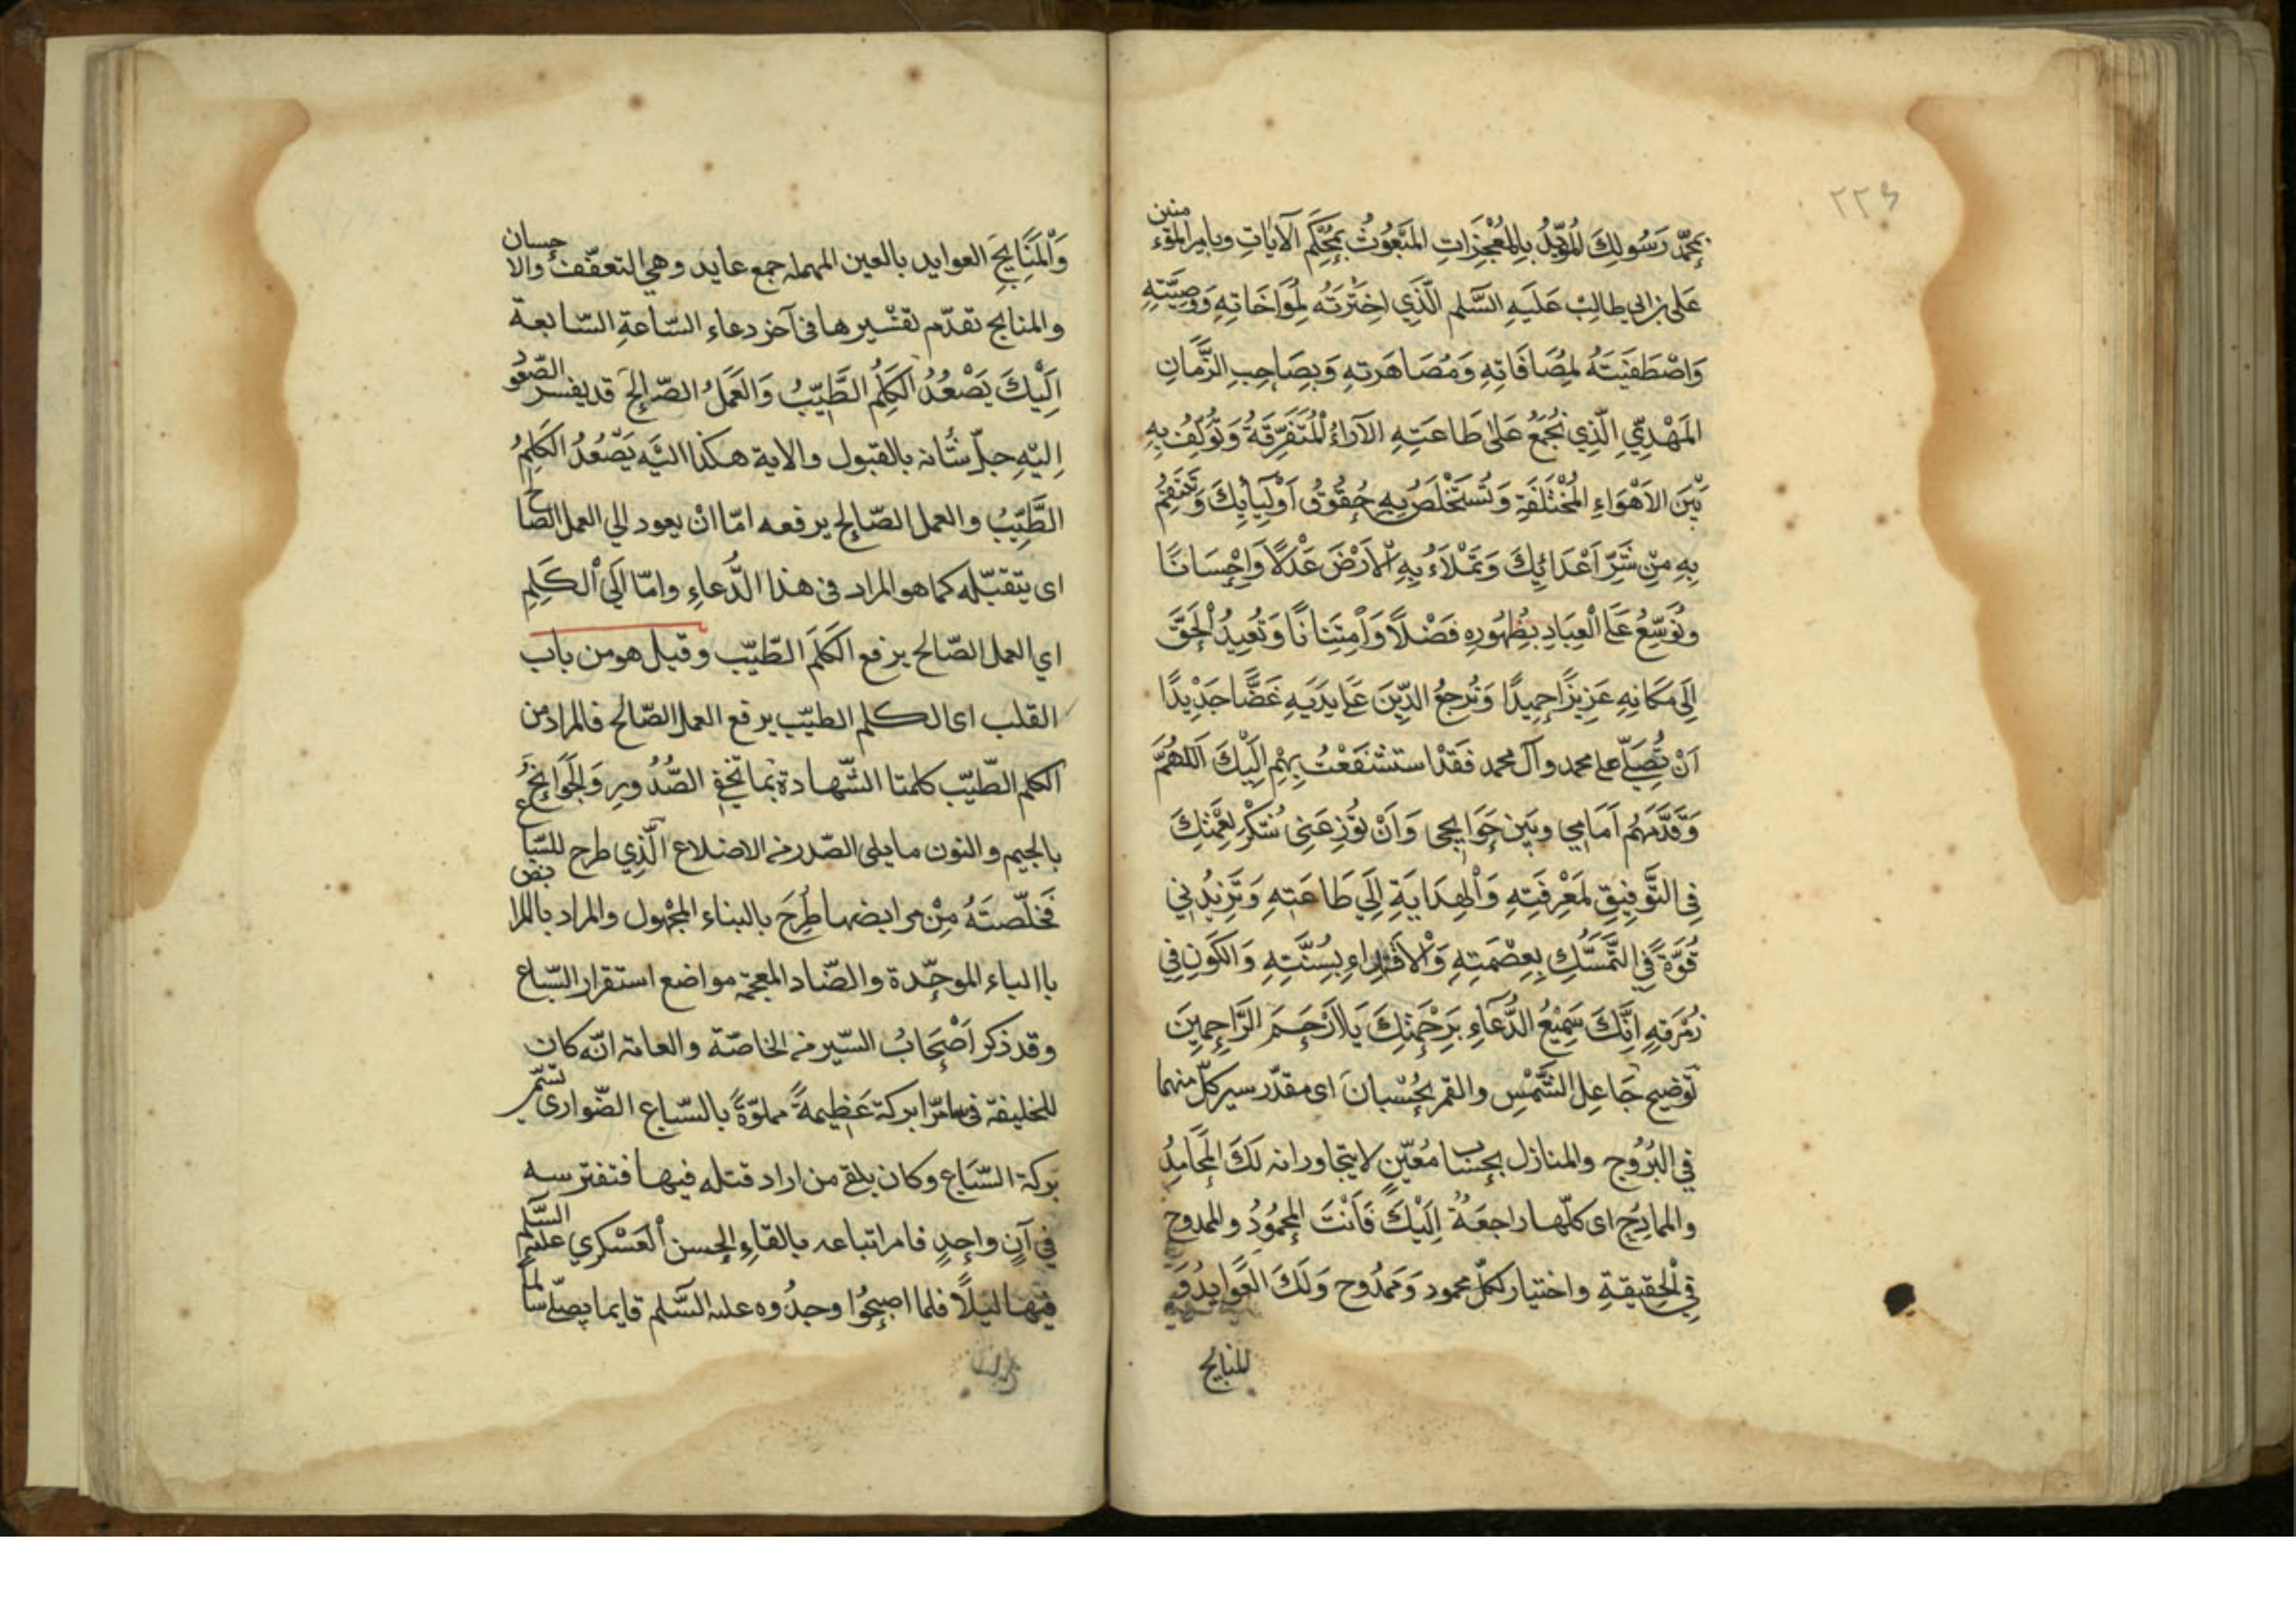 ٢٢٤
بمحمّد رَسُولِكَ المُؤيّدُ بِالمُعْجِزَاتِ المَبْعُوثُ بمُحْكَمِ الآيَاتِ وبامير المؤمنين
عَلى بن ابي طالِبْ عَلَيهِ السَّلم الَّذِي اخْتَرْتَهُ لِمُوَاخَاتِهِ وَوَصِيَّتِهِ
وَاصْطَفَيْتَهُ لمِصَافَاتِهِ وَمُصَاهَرتِهِ وَبِصَاحِبِ الزَّمَانِ
المَهْدِيّ الَّذِي تُجْمَعُ عَلىٰ طَاعَتِهِ الآرَاءُ الْمُتَفَرِّقَةُ وَتُؤَلِّفُ بِهِ
بَيْنَ الاَهْوَاءِ المُخْتَلَفَةِ وَتَسْتَخْلَصُ بِهِ حُقُوقُ اَوْلِيَائِكَ وَتَنْتَقِمُ
بِهِ مِنْ شَرِّ اَعْدَائِكَ وَتَمْلَاءُ بِهِ الْاَرْضَ عَدْلًا وَاِحْسَانًا
وتُوَسِّعُ عَلَى الْعِبَادِ بِظُهُورِهِ فَضْلاً وَاَمْتِنَانًا وَتُعِيدُ الْحَقَّ
اِلَى مَكَانِهِ عَزِيزًا حمِيدًا وَتُرجِعُ الدِّينَ عَلَى يَدَيَهِ غَضًّا جَدْيدًا
اَنْ تُصَلّي على محمد وآل محمد فَقَدْ استَشْفَعْتُ بِهِمْ اِلَيْكَ اَللهُمَّ
وَقَدَّمْهُم اَمَامِي وبَيَن حَوَايجى وَاَنْ تُوْزِعَنِى شُكْرَ نِعْمَتِكَ
فِى التَّوفيقِ لمَعْرِفَتِهِ وَالْهِدَايَةِ اِلَى طَاعَتِهِ وَتَزِيْدُنِي
قُوَّةً فِي التَّمَسُّكِ بِعِصْمَتِهِ وَالْاقْتِدَاءِ بِسُنَّتِهِ وَالكَوْنِ فِي
زُمْرَتِهِ اِنَّكَ سَمِيْعُ الدُّعَاءِ بَرحْمَتِكَ يَا اَرْحَمَ الرَّاحِمِيَن
تَوضيح جَاعِلِ الشَّمْسِ والقمر بحُسْبانَ اى مقدّر سير كلّ منهما
فِي البُرُوج والمنازل بحِسَاب مُعَيّنٍ لا يتجاورانه لَكَ المَحَامِدُ
والممادِح اى كلّها راجعَةٌ اِلَيْكَ فَاَنْتَ المَحمُودُ والممدوح
فِي الْحَقيقةِ واختيار لكلّ محمود وَممْدُوح وَلَكَ الْعَوايِدُ وَ
المنايح
وَالْمَنَايِحَ العوايد بالعين المهملة جمع عايد وهي التعفّف والاحسان
والمنايح تقدّم تفسْيرها فى آخر دعاء السّاعةِ السّابعة
اِلَيْكَ يَصْعُدُ الكَلِمُ الطَّيّبُ وَالعَمَلُ الصّالِحَ قد يفسر الصّعود
اِليْهِ جلّ شأنه بالقبول والاية هكذا اليَه يَصْعُدُ الكَلِمُ
الطَّيّبُ والعمل الصّالِح يرفعه امّا انْ يعود الي العمل الصّالح
اى يتقبّله كما هو المراد فى هذا الدُّعاءِ وامّا اِلَى الْكَلِمِ
اي العمل الصّالح يرفع الكَلَمَ الطّيّب وقيل هو من باب
القلب اى الكلم الطيّب يرفع العمل الصّالح فالمراد من
الكلم الطّيّب كلمتا الشّهادة بما تخفي الصُّدُورِ وَالجَوَانِحُ
بالجيم والنون ما يلى الصّدر من الاضلاع الَّذِي طرح للسّباع
فَخلّصتَهُ مِنْ مرابضها طُرِحَ بالبناء المجْهُول والمراد بالمرابض
باالباء الموحّدة والضّاد المعجمة مواضع استقرار السّباع
وقد ذكر اَصْحَابُ السّير من الخاصّة والعامة انّه كان
للخليفة فى سامرّا بركة عَظِيمةً مملوّةً بالسّباع الضّوارى تسمّى
بركة السّبَاع وكان يلقى من اراد قتله فيها فتفترسه
فِي آنٍ واحِدٍ فامر اتباعه بالقاءِ الحسن العَسْكري عليه السّلم
فيها ليْلًا فلما اصبحُوا وجدُوه عليه السّلم قايما يصلّي سالما